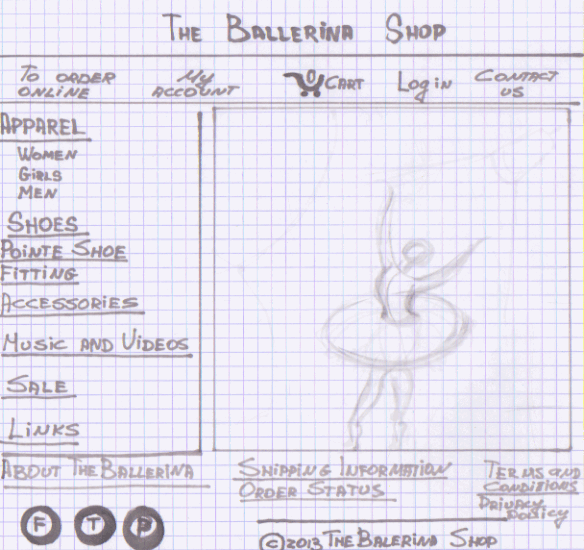 THE BALLERINA SHOP
TO ORDER ONLINE
MY ACCOUNT
0
CART
Log in
CONTACT US
APPAREL
WOMEN
GIRLS
MEN
SHOES
POINTE SHOE
FITTING
ACCESSORIES
MUSIC AND VIDEOS
SALE
LINKS
ABOUT THE BALLERINA
SHIPPING INFORMATION
ORDER STATUS
TERMS AND
CONDITIONS
PRIVACY
POLICY
F T P
© 2013 THE BALERINA SHOP